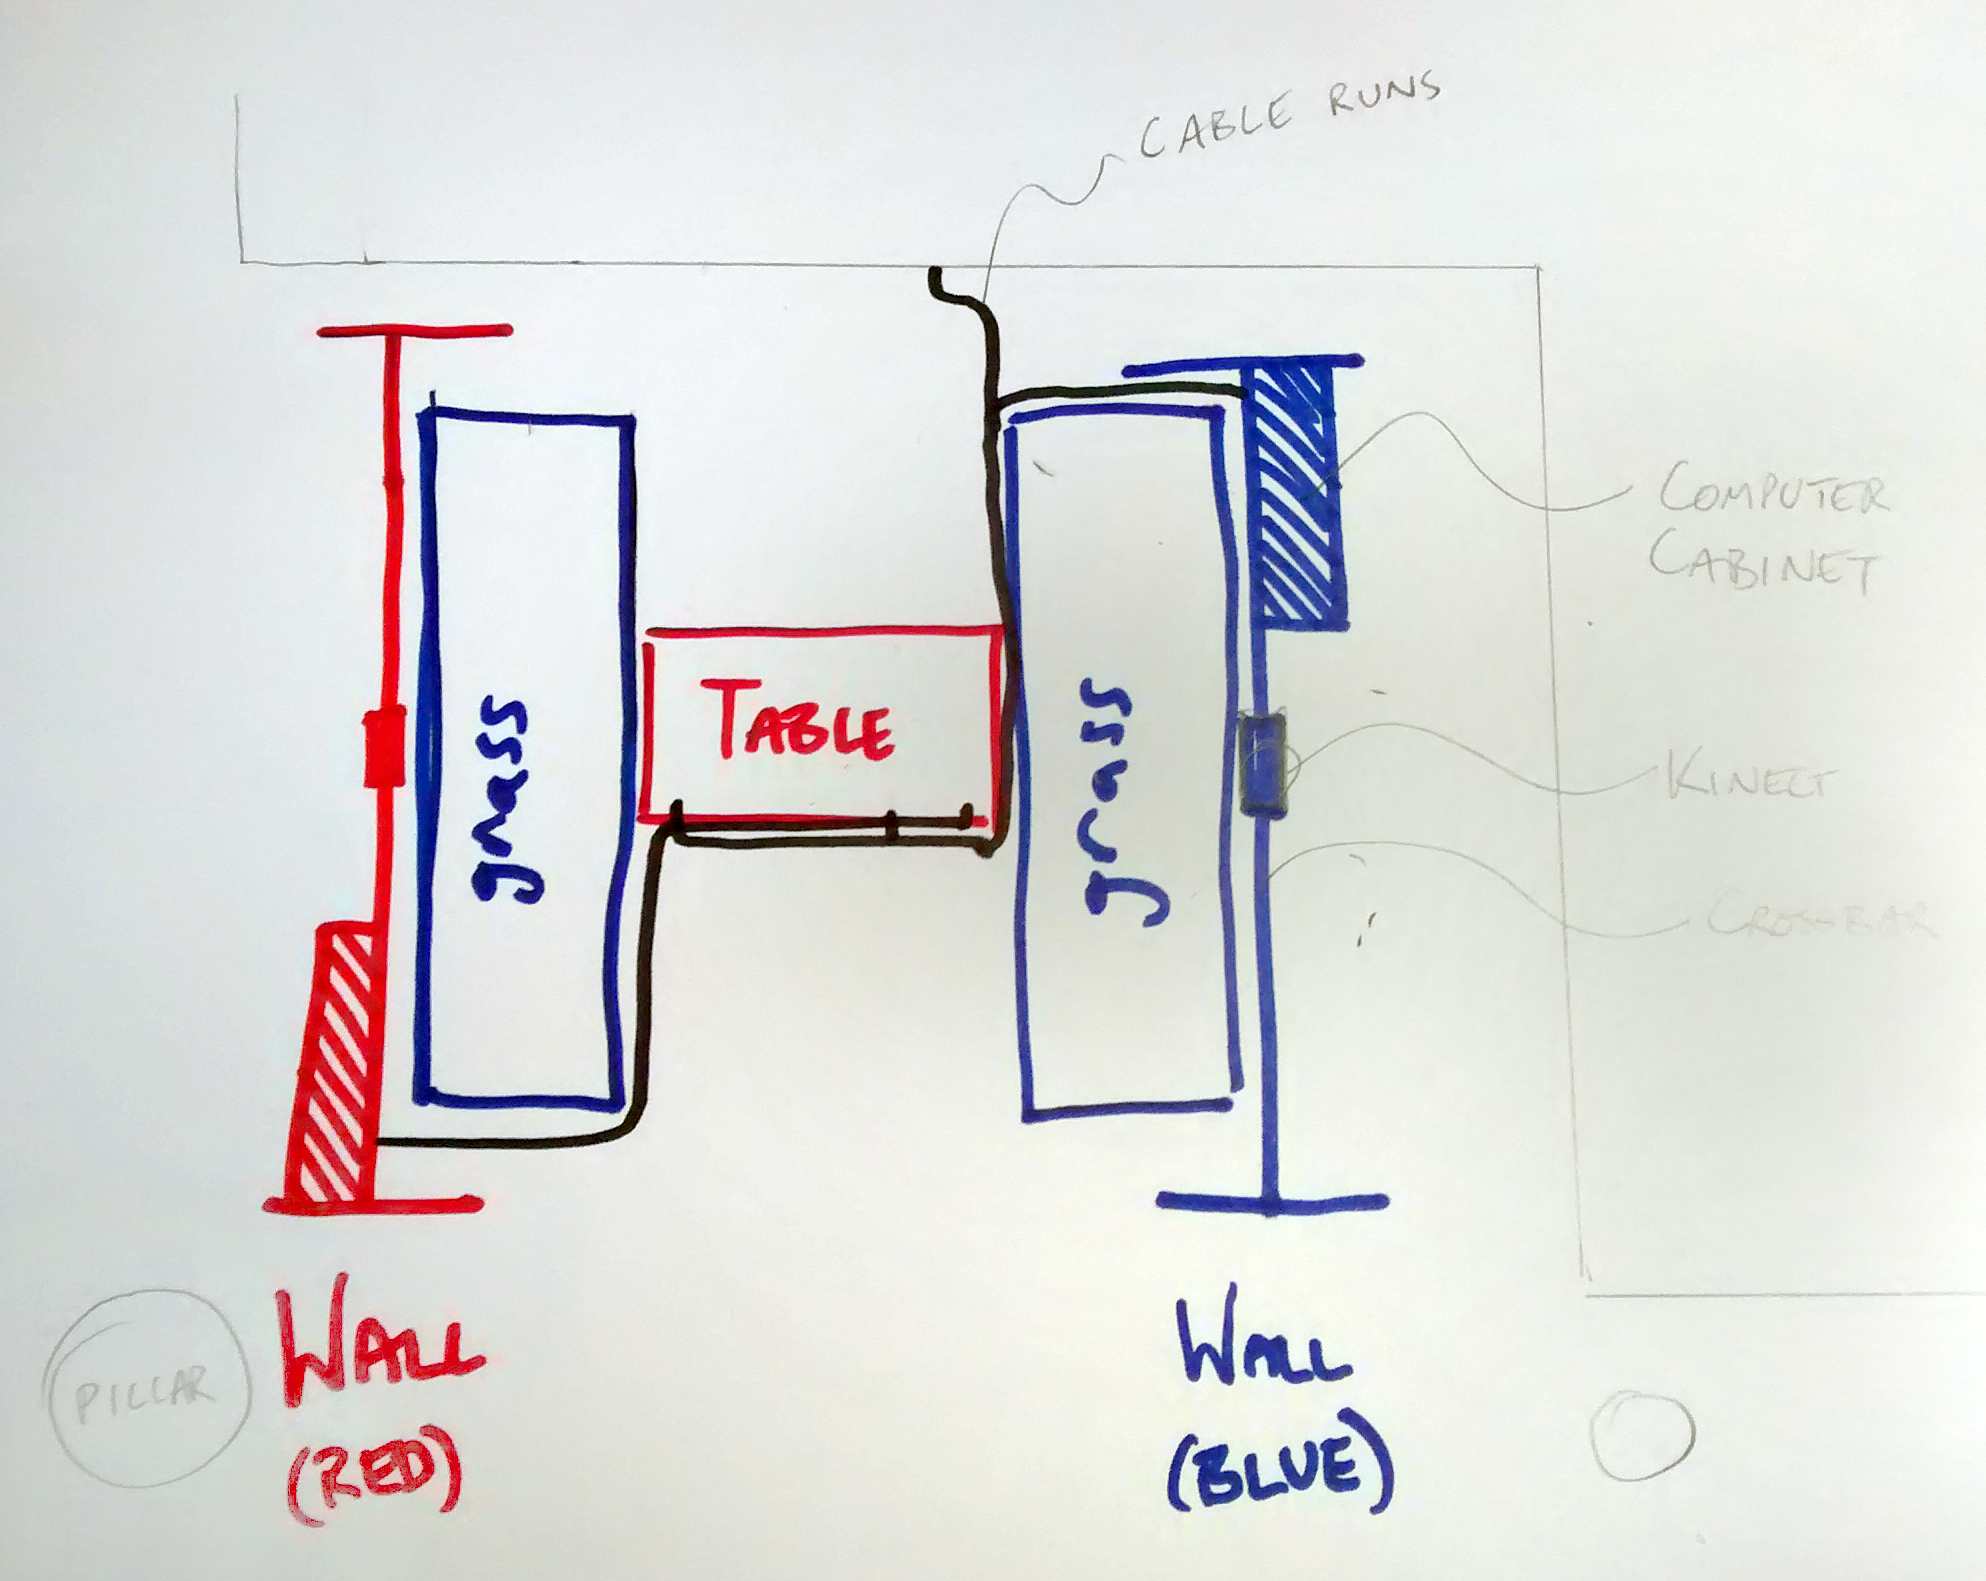 CABLE RUNS
COMPUTER
CABINET
grass
TABLE
grass
KINECT
CROSSBAR
WALL
(RED)
WALL
(BLUE)
PILLAR